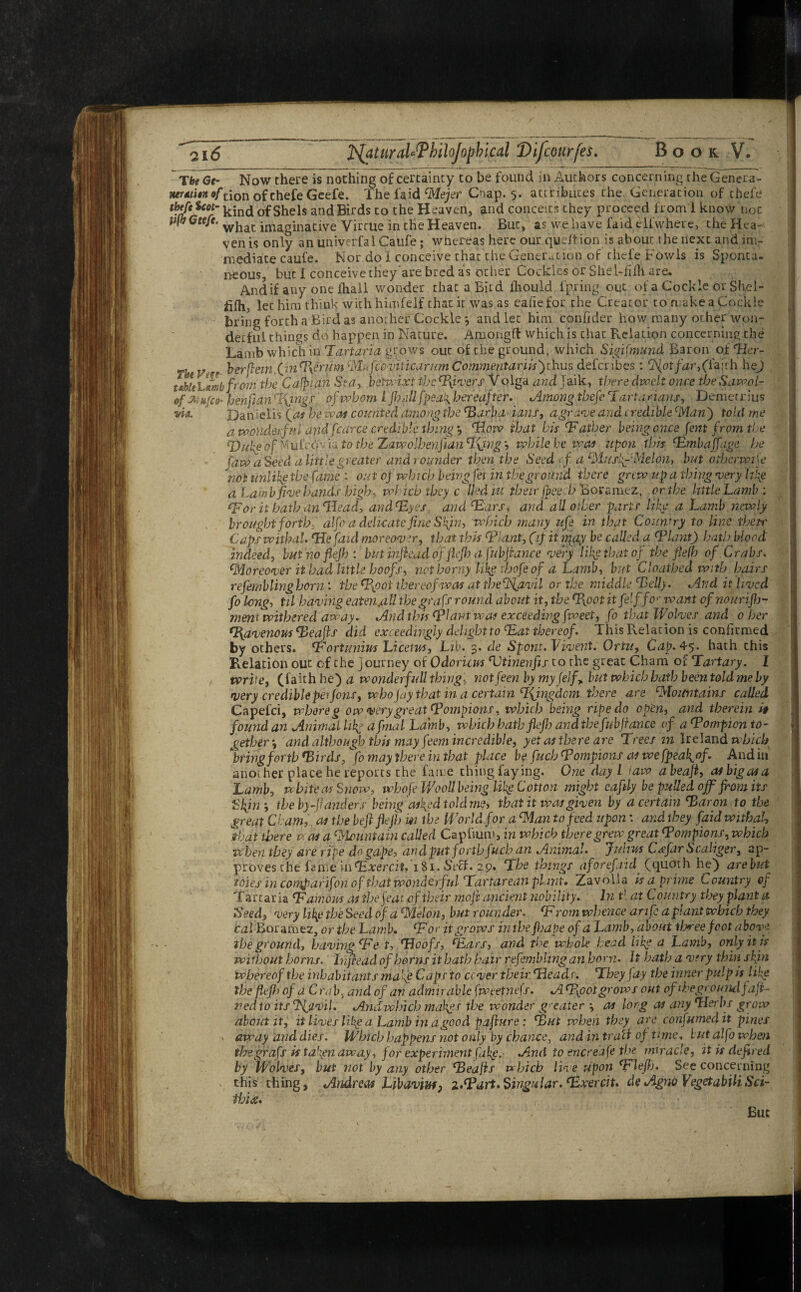 216 Natural-Philosophical Discourses. Book V.
The Ge- Now there is nothing of certainty to be found in Authors concerning the Genera-
neration of tion of these Geese. The said Mejer Chap. 5. attributes the Generation of these
these Scot- kind of Shels and Birds to the Heaven, and conceits they proceed from I know not
tish Geese. what imaginative Virtue in the Heaven. But, as we have said elswhere, the Hea-
ven is only an universal Cause; whereas here our question is about the next and im-
mediate cause. Nor do I conceive that the Generation of these Fowls is Sponta-
neous, but I conceive they are bred as other Cockles or Shel-fish are.
And if any one shall wonder that a Bird should spring out of a Cockle or Shel-
fish, let him think with himself that it was as easie for the Creator to make a Cockle
bring forth a Bird as another Cockle; and let him consider how many other won-
derful things do happen in Nature. Amongst which is that Relation concerning the
Lamb which in Tartaria grows out of the ground, which Sigismund Baron of Her-
The Vege- berstein (in Rerum Muscoviticarum Commentariis) thus describes: Not far, (saith he)
table Lamb from the Caspian Sea, betwixt the Rivers Volga and Jaik, there dwelt once the Sawol-
of Musco- hensian Kings of whom I shall speak hereafter. Among these Tartarians, Demetrius
via. Danielis (as he was counted among the Barbarians, a grave and credible Man) told me
a wonderful and scarce credible thing; How that his Father being once sent from the
Duke of Muscovia to the Zawolhensian King; while he was upon this Embassage he
saw a Seed a little greater and rounder then the Seed of a Musk-Melon, but otherwise
not unlike the same: out of which being set in the ground there grew up a thing very like
a Lamb five hands high, which they called in their speech Boramez, or the little Lamb:
For it hath an Head, and Eyes and Ears, and all other parts like a Lamb newly
brought forth, also a delicate fine Skin, which many use in that Country to line their
Caps withal. He said moreover, that this Plant, (if it may be called a Plant) hath blood
indeed, but no flesh: but instead of flesh a substance very like that of the flesh of Crabs.
Moreover it had little hoofs, not horny like those of a Lamb, but Cloathed with hairs
resembling horn: the Root thereof was at the Navil or the middle Belly. And it lived
so long, til having eaten all the grass round about it, the Root it self for want of nourish-
ment withered away. And this Plant was exceeding sweet, so that Wolves and other
Ravenous Beasts did exceedingly delight to Eat thereof. This Relation is confirmed
by others. Fortunius Licetus, Lib. 3. de Spont. Vivent. Ortu, Cap. 45. hath this
Relation out of the journey of Odoricus Utinensis to the great Cham of Tartary. I
write, (saith he) a wonderfull thing, not seen by my self, but which hath been told me by
very credible persons, who say that in a certain Kingdom there are Mountains called
Capesci, whereg ow very great Pompions, which being ripe do open, and therein is
found an Animal like a smal Lamb, which hath flesh and the substance of a Pompion to-
gether; and although this may seem incredible, yet as there are Trees in Ireland which
bring forth Birds, so may there in that place be such Pompions as we speak of. And in
another place he reports the same thing saying. One day I saw a beast, as big as a
Lamb, white as Snow, whose Wooll being like Cotton might easily be pulled off from its
Skin; the by-standers being asked told me, that it was given by a certain Baron to the
great Cham, as the best flesh in the World for a Man to feed upon: and they said withal,
that there was a Mountain called Capsium, in which there grew great Pompions, which
when they are ripe do gape, and put forth such an Animal. Julius Cæsar Scaliger, ap-
proves the same in Exercit. 181. Sect. 29. The things aforesaid (quoth he) are but
toies in comparison of that wonderful Tartarean plant. Zavolla is a prime Country of
Tartaria Famous as the seat of their most ancient nobility. In that Country they plant a
Seed, very like the Seed of a Melon, but rounder. From whence arise a plant which they
cal Boramez, or the Lamb. For it grows in the shape of a Lamb, about three foot above
the ground, having Feet, Hoofs, Ears, and the whole head like a Lamb, only it is
without horns. Instead of horns it hath hair resembling an horn. It hath a very thin skin
whereof the inhabitants make Caps to cover their Heads. They say the inner pulp is like
the flesh of a Crab, and of an admirable sweetness. A Root grows out of the ground fast-
ned to its Navil. And which makes the wonder greater; as long as any Herbs grow
about it, it lives like a Lamb in a good pasture: But when they are consumed it pines
away and dies. Which happens not only by chance, and in tract of time, but also when
the grass is taken away, for experiment sake. And to encrease the miracle, it is desired
by Wolves, but not by any other Beasts which live upon Flesh. See concerning
this thing, Andreas Libavius, 2. Part. Singular. Exercit. de Agno Vegetabili Sci-
thiæ.
But